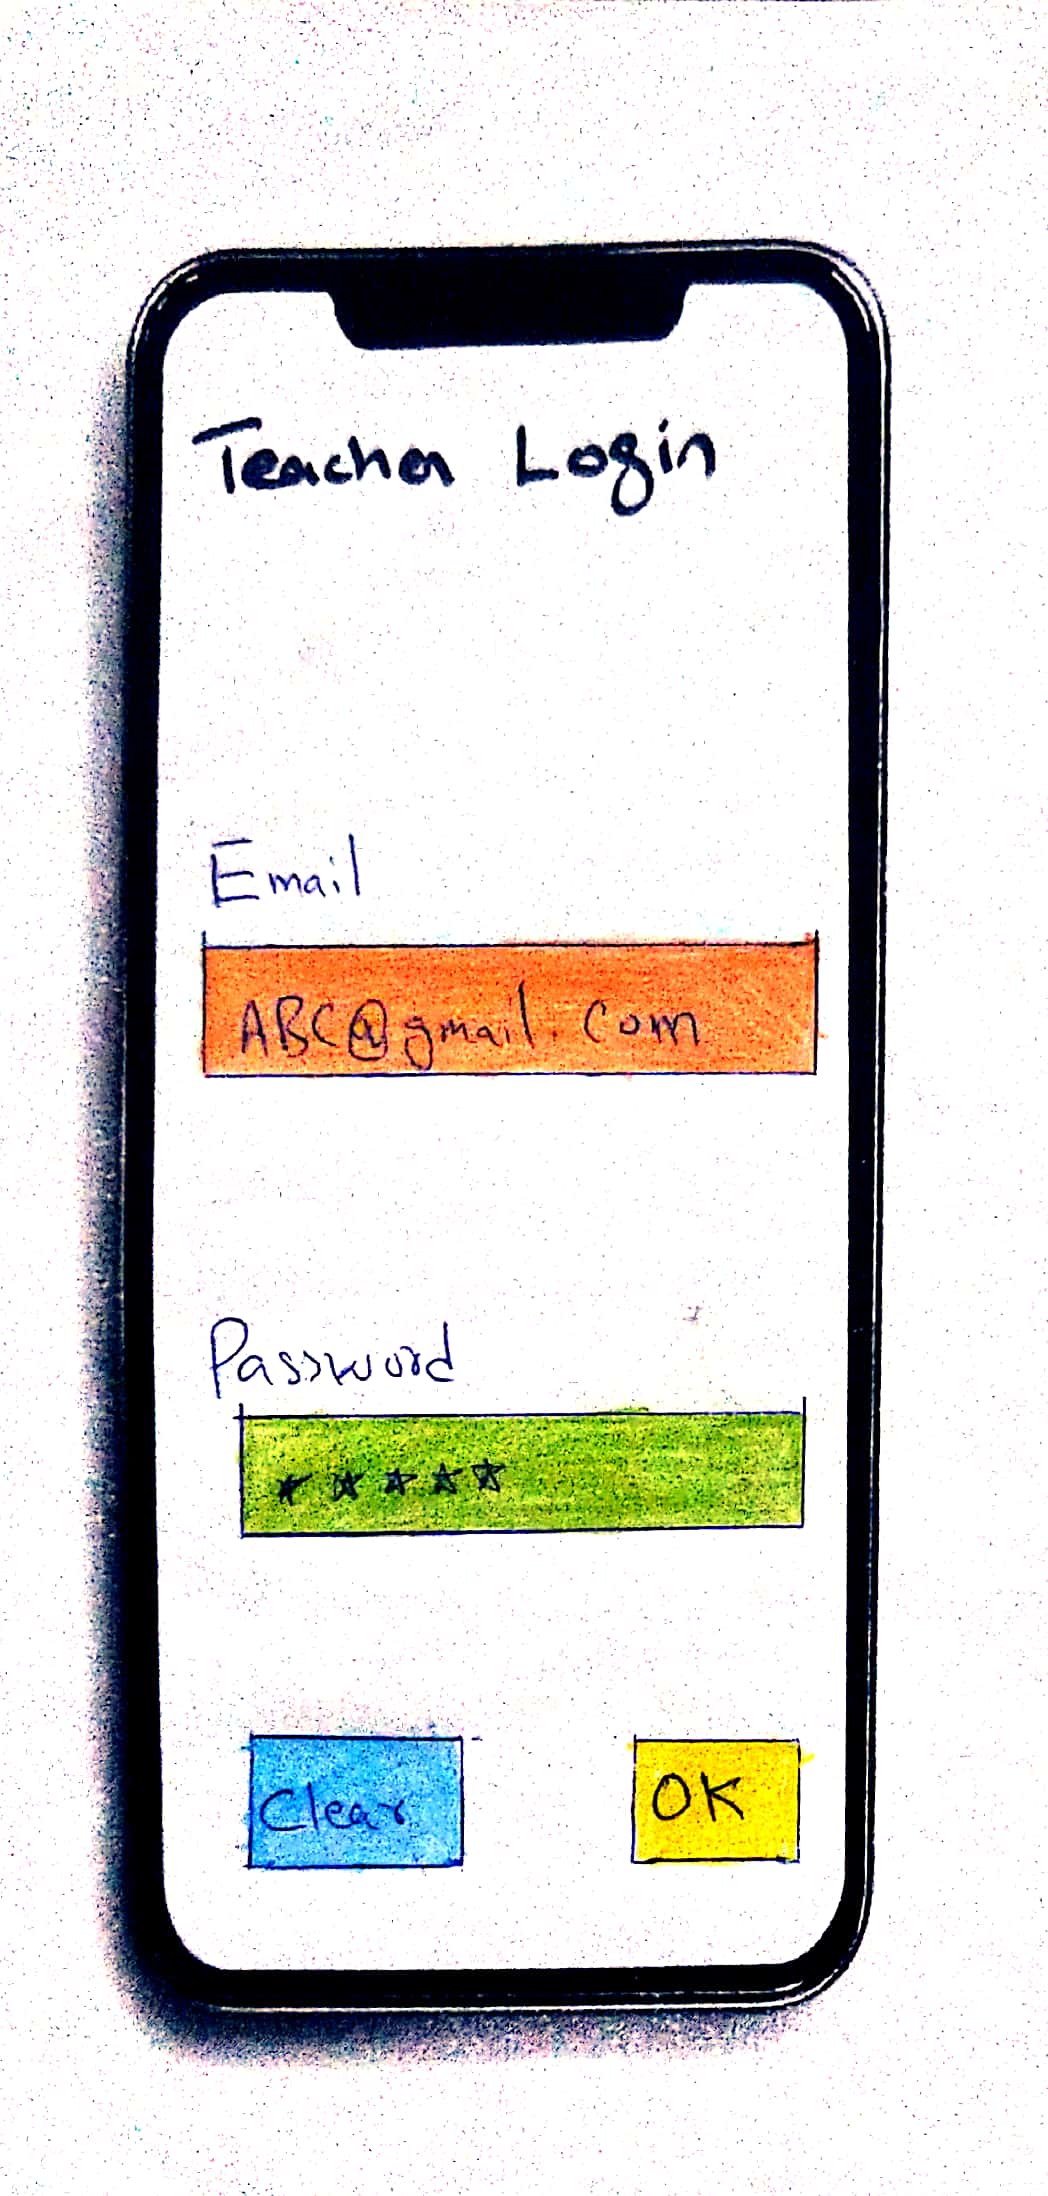 Teacher Login
Email
ABC@gmail.com
Password
*****
Clear
OK